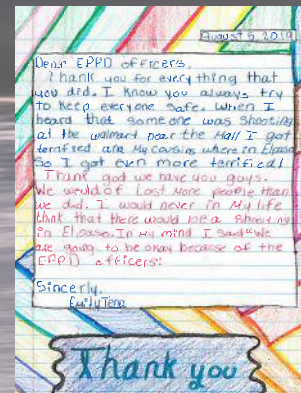 August 5, 2019
Dear EPPD officers,
Thank you for every thing that
you did. I know you always try
to keep everyone safe. When I
heard that someone was shooting
at the walmart near the Mall I got
terrified and My cousins where in Elpaso
So I got even more terrified!
Thank god we have you guys.
We would of Lost more people than
we did. I would never in My life
think that there would be a shooting
in Elpaso. In My mind I said "We
are going to be okay because of the
EPPD officers!
Sincerely,
Emily Tena
Thank you